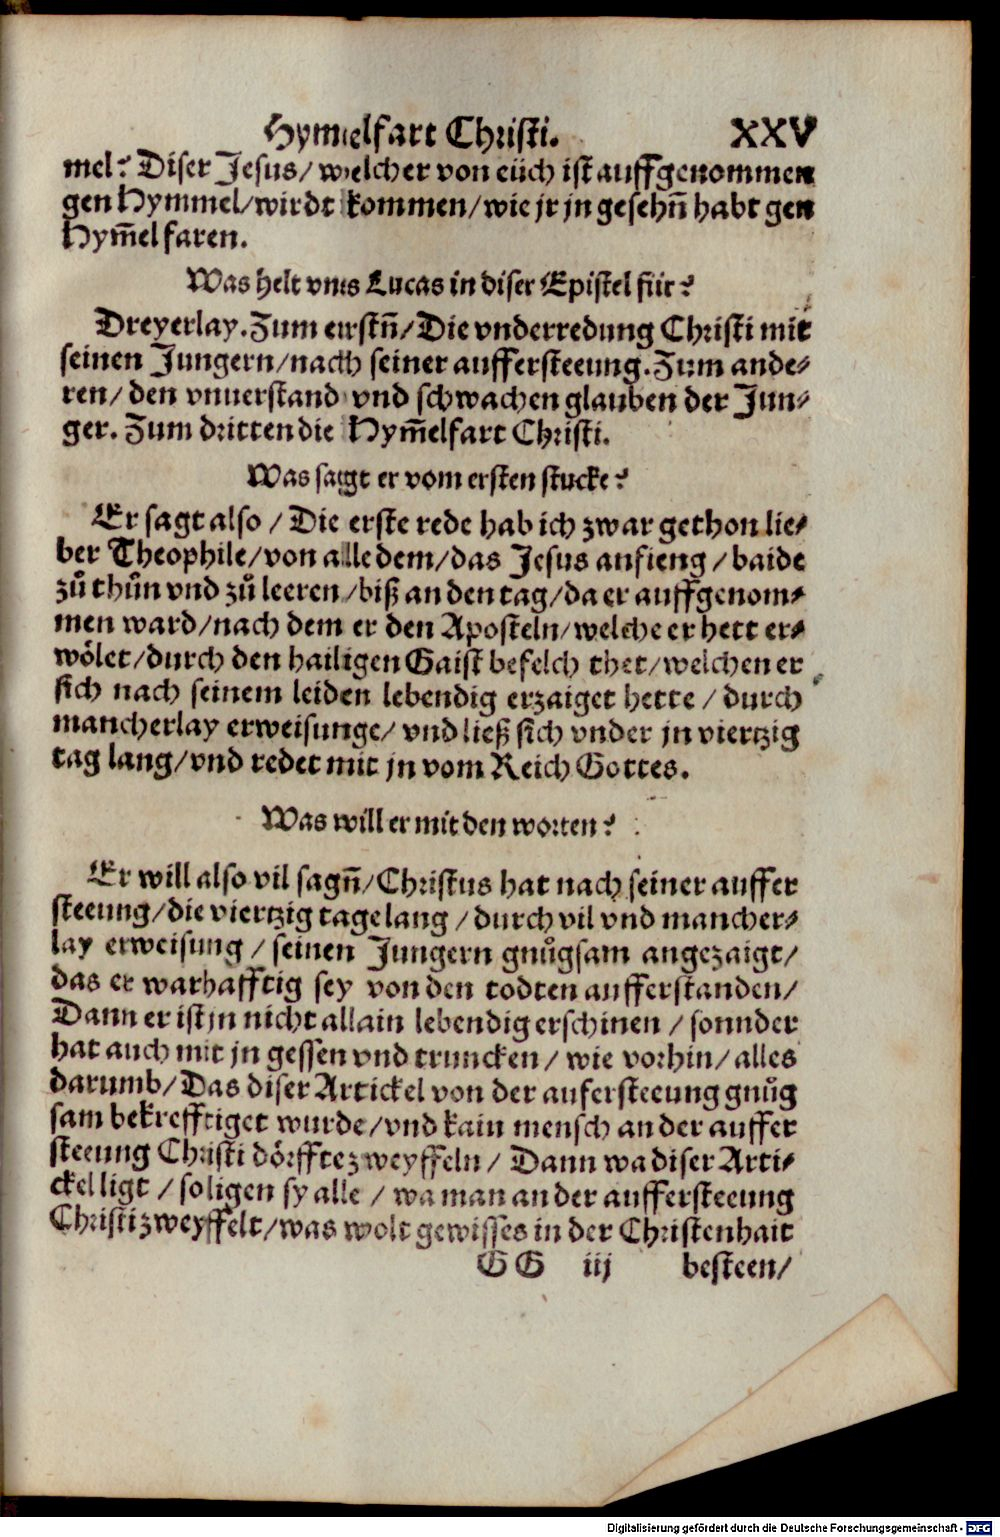 Hymmelfart Christi. XXV
mel? Diser Jesus/ welcher von eüch ist auffgenommen
gen Hymmel/wirdt kommen/wie jr jn gesehn̄ habt gen
Hym̄el faren.
Was helt vnns Lucas in diser Epistel für?
Dreyerlay. Zum erstn̄/Die vnderredung Christi mit
seinen Jungern/nach seiner auffersteeung. Zum ande-
ren/ den vnuerstand vnd schwachen glauben der Jun-
ger. Zum dritten die Hym̄elfart Christi.
Was sagt er vom ersten stucke?
Er sagt also / Die erste rede hab ich zwar gethon lie-
ber Theophile/von alle dem/das Jesus anfieng / baide
zů thůn vnd zů leeren/biß an den tag/da er auffgenom-
men ward/nach dem er den Aposteln/welche er hett er-
wölet/durch den hailigen Gaist befelch thet/welchen er
sich nach seinem leiden lebendig erzaiget hette / durch
mancherlay erweisunge/ vnd ließ sich vnder jn viertzig
tag lang/vnd redet mit jn vom Reich Gottes.
Was will er mit den worten?
Er will also vil sagn̄/Christus hat nach seiner auffer
steeung/die viertzig tage lang / durch vil vnd mancher-
lay erweisung / seinen Jungern gnůgsam angezaigt/
das er warhafftig sey von den todten aufferstanden/
Dann er ist jn nicht allain lebendig erschinen / sonnder
hat auch mit jn gessen vnd truncken/ wie vorhin/ alles
darumb/Das diser Artickel von der aufersteeung gnůg
sam bekrefftiget wurde/vnd kain mensch an der auffer
steeung Christi dörffte zweyffeln/ Dann wa diser Arti-
ckel ligt / so ligen sy alle / wa man an der aufferstecung
Christi zweyffelt/was wolt gewisses in der Christenhait
GG iij besteen/
Digitalisierung gefördert durch die Deutsche Forschungsgemeinschaft - DFG